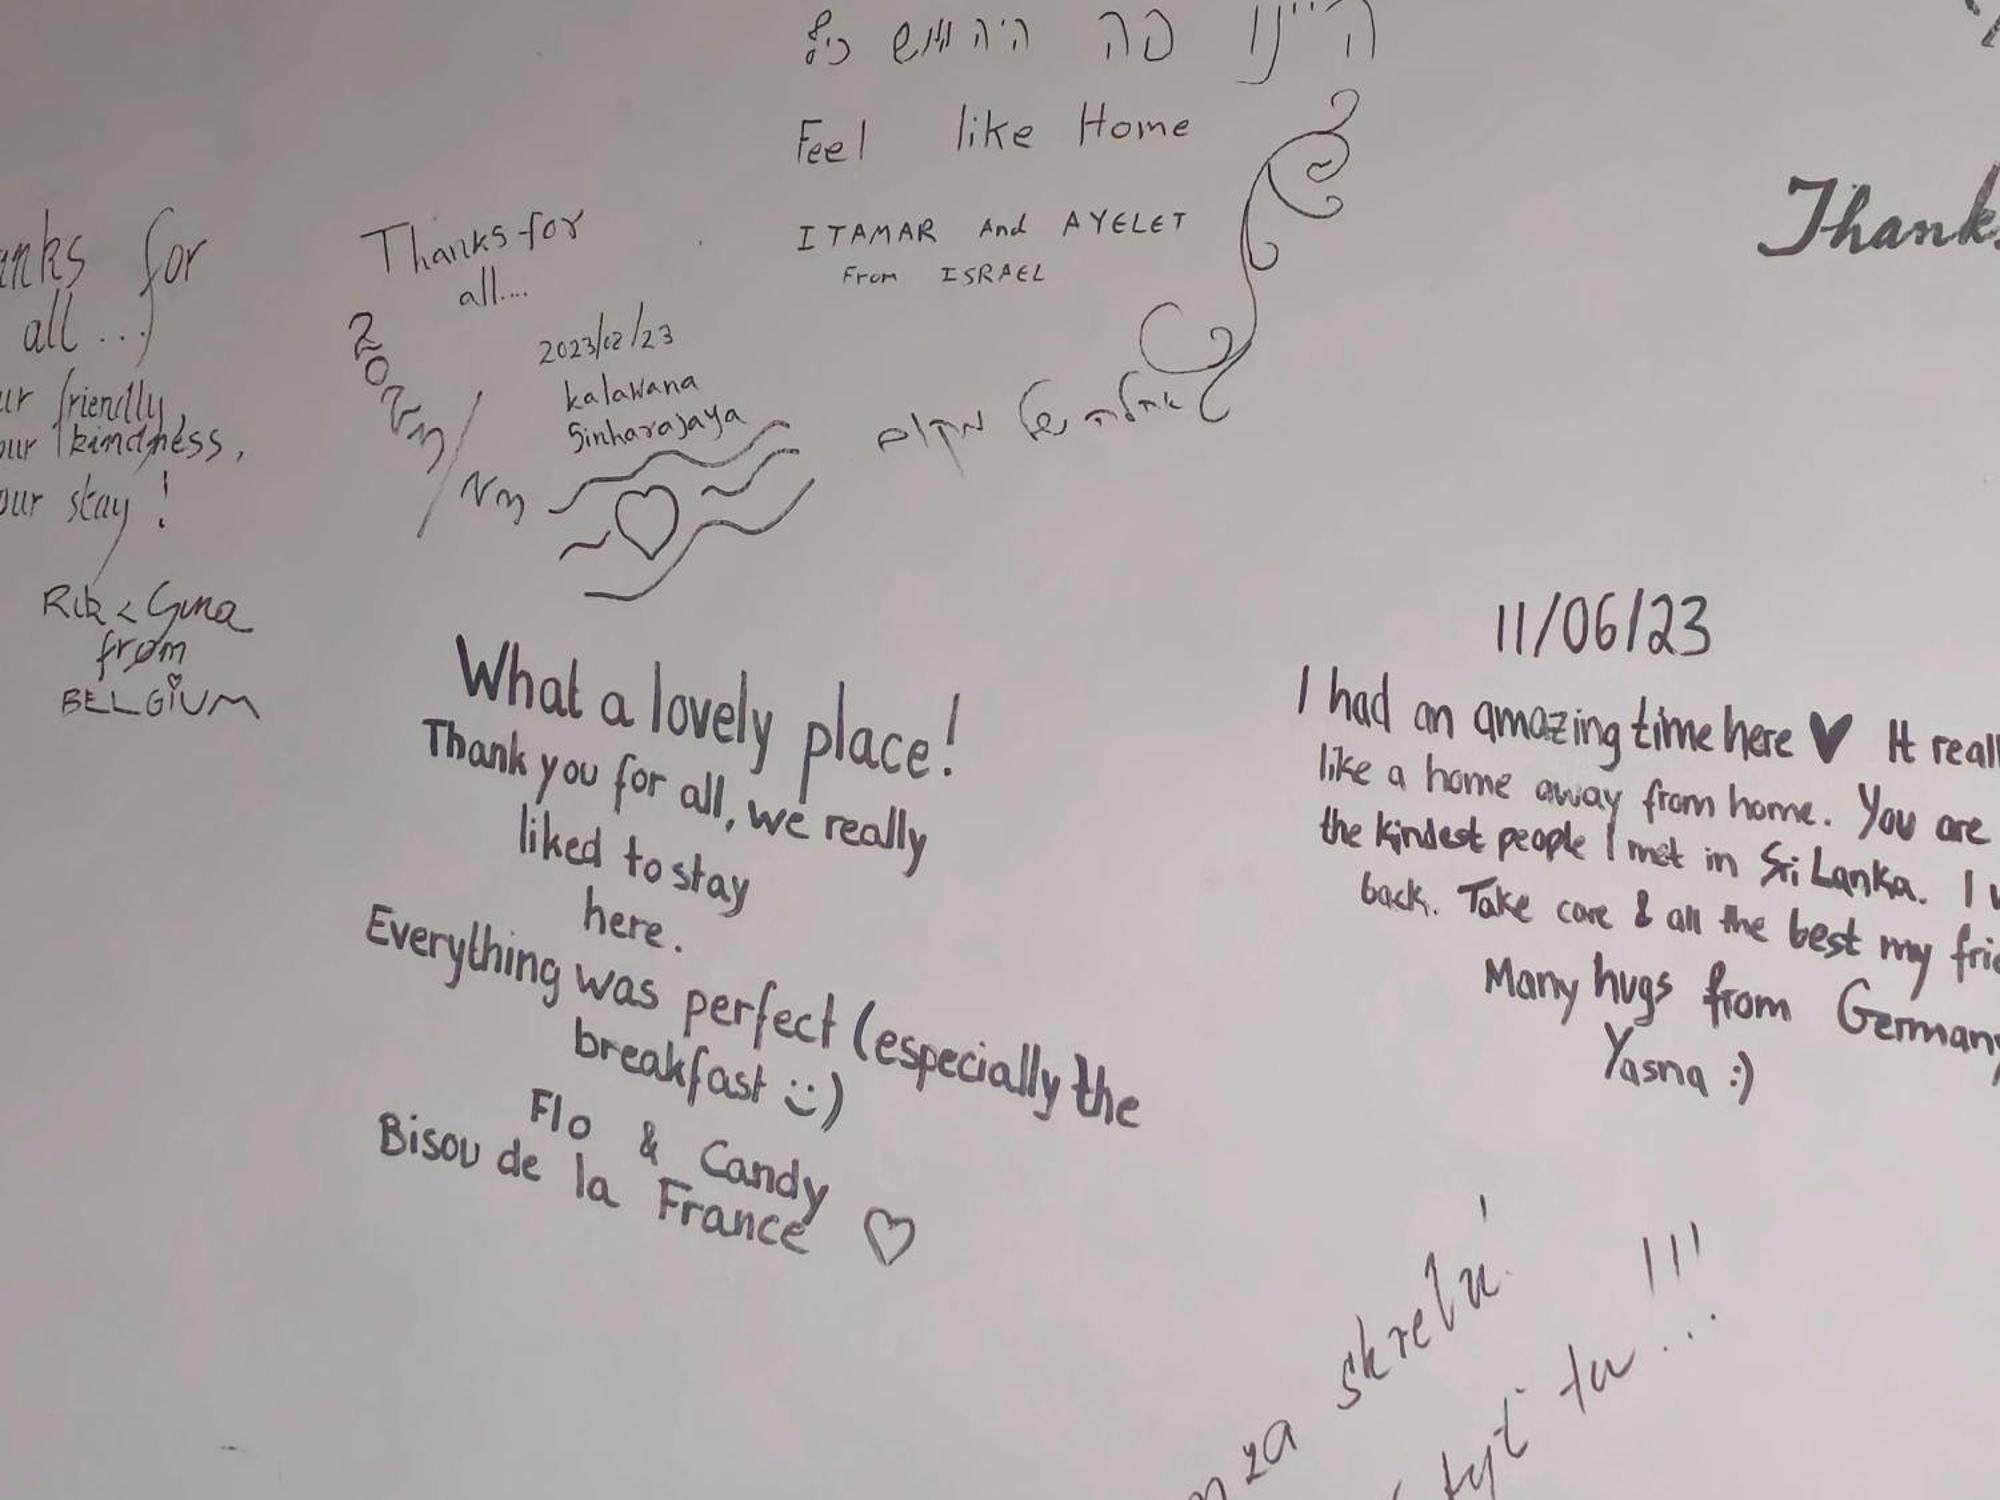 היינו פה היה ממש כיף
Feel like Home
ITAMAR And AYELET
From ISRAEL
אחלה של מקום
anks for
all...
ur friendly,
our kindness,
our stay!
Rik & Gina
from
BELGIUM
Thanks for
all....
2023/02/23
kalawana
Sinharajaya
Thank
What a lovely place!
Thank you for all, we really
liked to stay
here.
Everything was perfect (especially the
breakfast :))
Flo & Candy
Bisou de la France ♡
11/06/23
I had an amazing time here ♥ It reall
like a home away from home. You are
the kindest people I met in Sri Lanka. I
back. Take care & all the best my frie
Many hugs from Germany
Yasna :)
za
tu...!!!